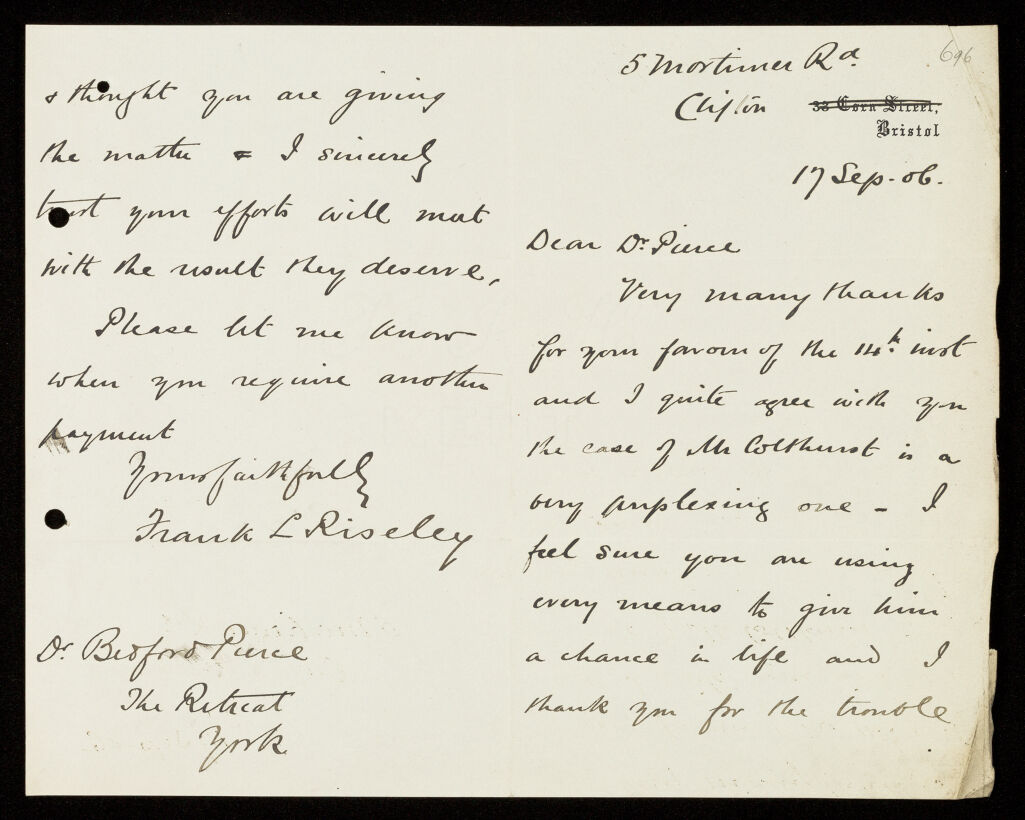 696
5 Mortimer Rd.
Clifton
33 Corn Street,
Bristol
17 Sep. 06.
Dear Dr. Pierce
Very many thanks
for your favour of the 14th. inst
and I quite agree with you
the case of Mr Colthurst is a
very perplexing one - I
feel sure you are using
every means to give him
a chance in life and I
thank you for the trouble
& thought you are giving
the matter & I sincerely
trust your efforts will meet
with the result they deserve.
Please let me know
when you require another
payment
Yours faithfully
Frank L Riseley
Dr. Bedford Pierce
The Retreat
York